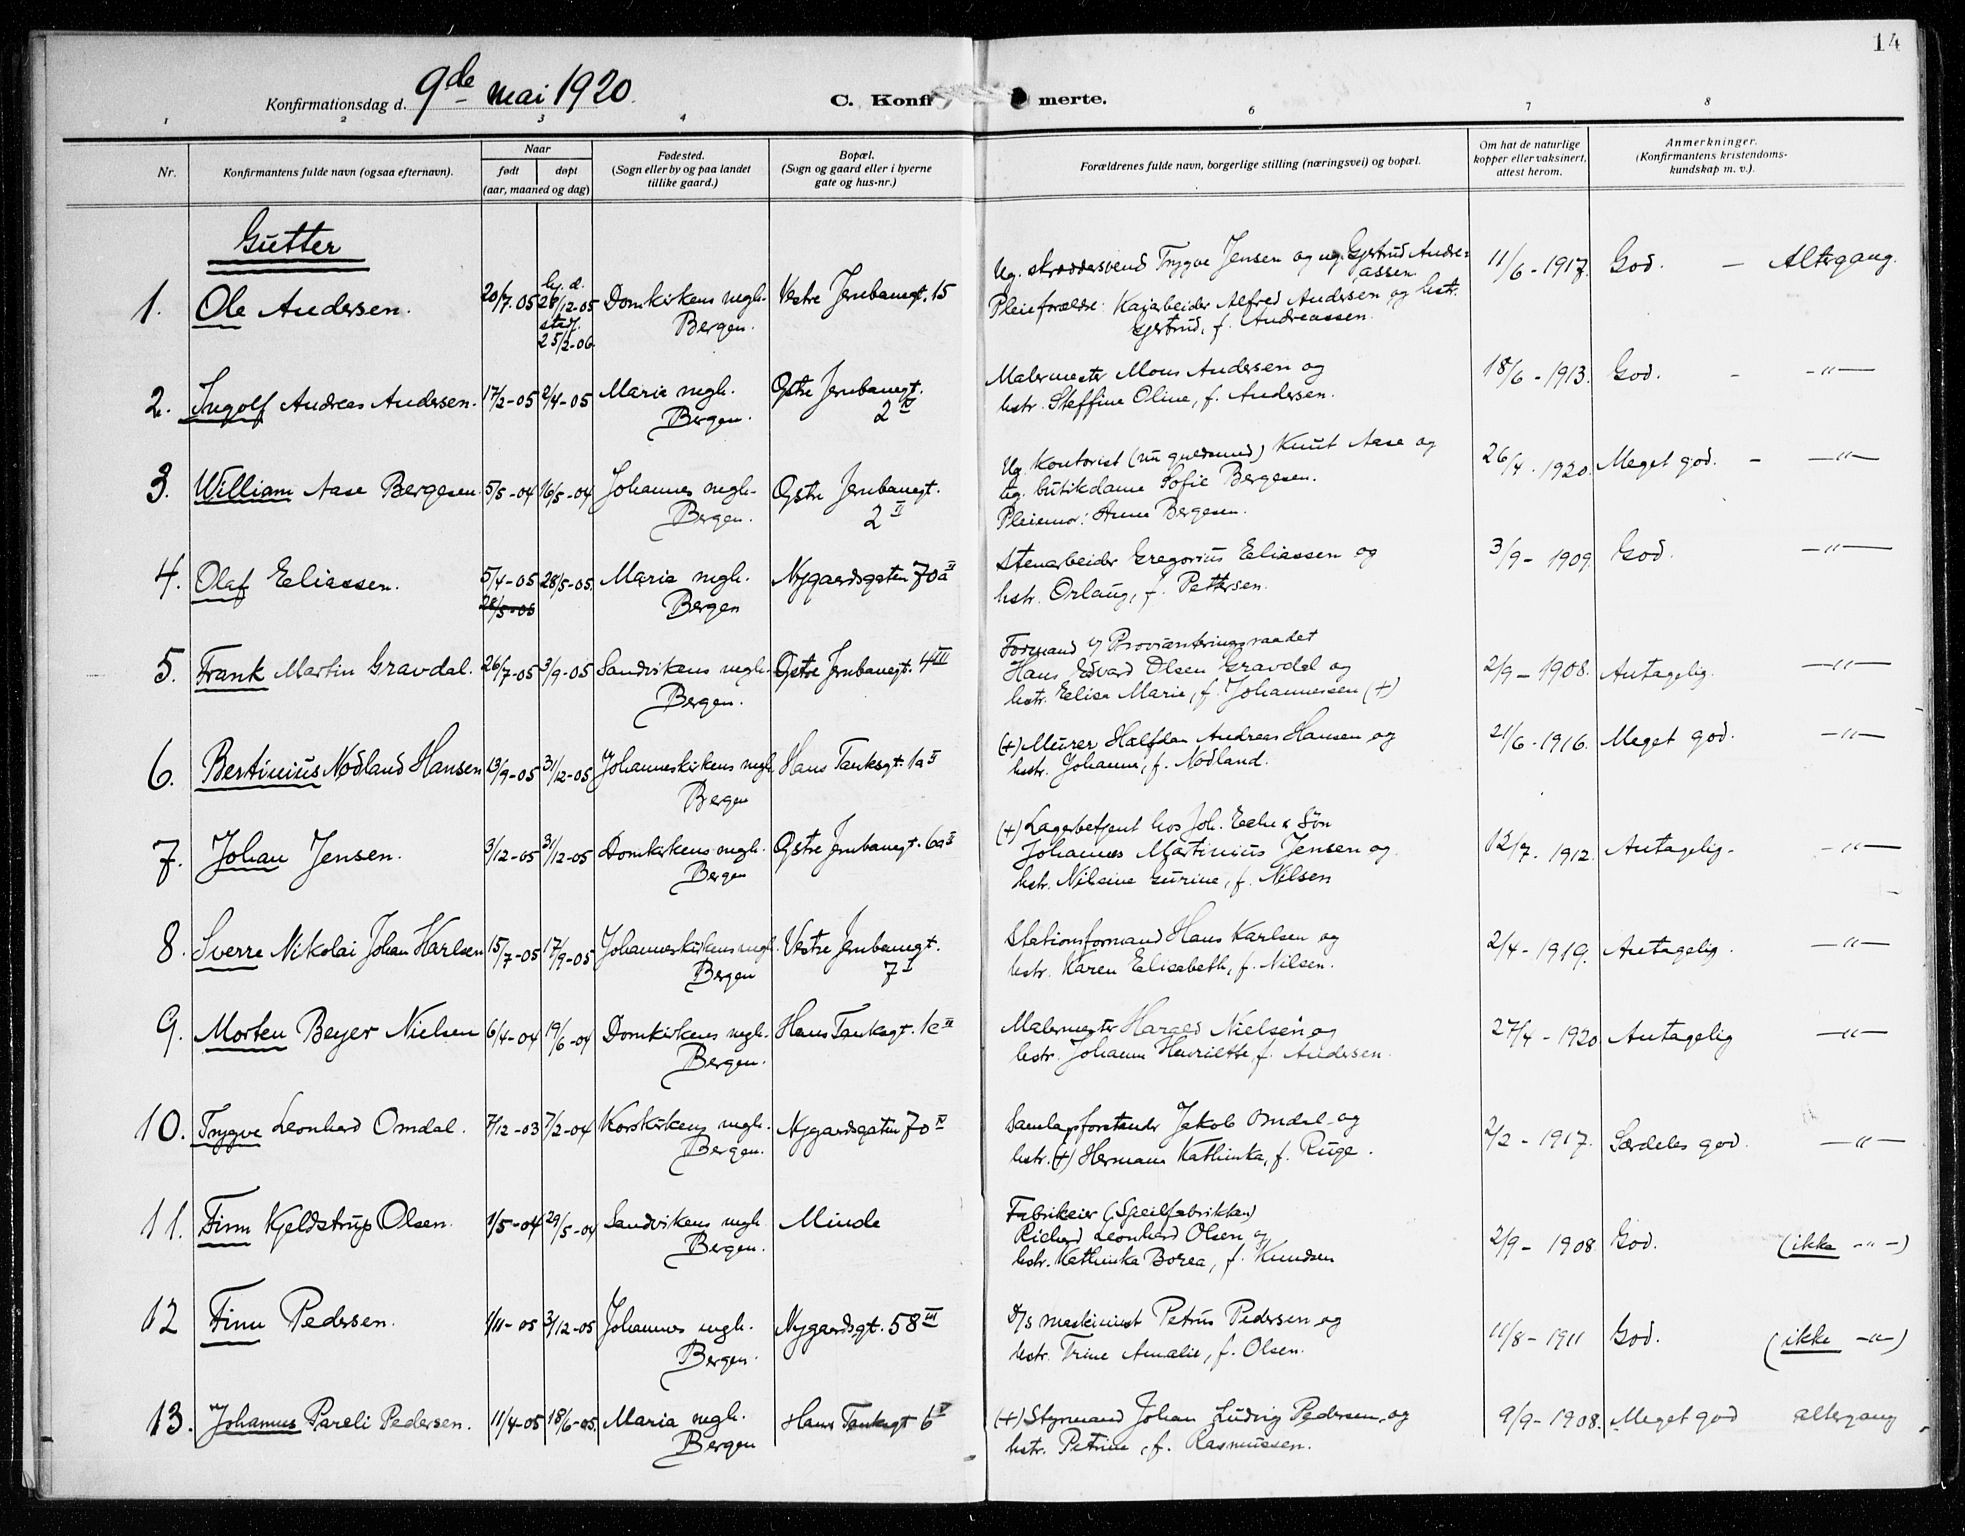 14
Konfirmationsdag d. 9de mai 1920.
C. Konfi merte.
1 2 3 4 6 7 8
Nr.
Konfirmantens fulde navn (ogsaa efternavn).
Naar
født døpt
(aar, maaned og dag)
Fødested.
(Sogn eller by og paa landet
tillike gaard.)
Bopæl.
(Sogn og gaard eller i byerne
gate og hus-nr.)
Forældrenes fulde navn, borgerlige stilling (næringsvei) og bopæl.
Om hat de naturlige
kopper eller vaksinert,
attest herom.
Anmerkninger.
(Konfirmantens kristendoms-
kundskap m. v.).
Gutter
1. Ole Andersen. 20/7-05 hj. d. 28/12-05 Domkirkens megh. Vestre Jernbanegt. 15
stadf. 25/2-06. Bergen.
Ug. skræddersvend Trygve Jensen og ug. Gjertrud Andre-
assen 11/6-1917. God. - Altergang.
Pleieforældre: Kaiarbeider Alfred Andersen og hstr.
Gjertrud, f. Andreassen.
2. Ingolf Andreas Andersen. 17/2-05 2/4-05 Maria megh. Østre Jernbanegt.
Bergen. 2 II
Malermester Mons Andersen og 18/6-1913. God. - -"-
hstr. Steffine Oline, f. Andersen.
3. William Aase Bergesen. 5/5-04 16/5-04 Johannes megh. Østre Jernbanegt.
Bergen. 2 II
Ug. Kontorist (nu guldsmed) Knut Aase og 26/4-1920. Meget god. - -"-
ug. butikdame Sofie Bergesen.
Pleiemor: Anna Bergesen.
4. Olaf Eliassen. 5/4-05 28/5-05. Maria megh. Nygaardsgaten 70a II
28/5-05 Bergen
Stenarbeider Gregorius Eliassen og 3/9-1909. God. -"-
hstr. Orlaug, f. Pettersen.
5. Frank Martin Gravdal. 26/7-05 3/9-05 Sandvikens megh. Østre Jernbanegt. 4 III
Bergen.
Formand v/ Provianteringsraadet
Hans Edvard Olsen Gravdal og 2/9-1908. Antagelig. -"-
hstr. Elisa Marie, f. Johannessen (+)
6. Bertinius Nødland Hansen 13/9-05 31/12-05 Johanneskirkens megh. Hans Tanksgt. 1a I
Bergen
(+) Murer Halfdan Andreas Hansen og 21/6-1916. Meget god. -"-
hstr. Johanna, f. Nødland.
7. Johan Jensen. 3/12-05 31/12-05 Domkirkens megh. Østre Jernbanegt. 6a I
Bergen
(+) Lagerbetjent hos Joh. & Søn
Johannes Martinius Jensen og 12/7-1912. Antagelig. -"-
hstr. Nilsine Gurine, f. Nilsen
8. Sverre Nikolai Johan Karlsen 15/7-05 17/9-05 Johanneskirkens megh. Vestre Jernbanegt.
Bergen 7 I
Stationsformand Hans Karlsen og 2/4-1919. Antagelig. -"-
hstr. Karen Elisabeth, f. Nilsen.
9. Morten Beyer Nielsen 6/4-04 19/6-04 Domkirkens megh. Hans Tanksgt. 1c II
Bergen.
Malermester Harald Nielsen og 27/4-1920 Antagelig -"-
hstr. Johanna Henriette f. Andersen.
10. Trygve Leonhard Omdal. 7/12-03 7/2-04 Korskirkens megh. Nygaardsgaten 70 II
Bergen.
Samlagsforstander Jakob Omdal og 2/2-1917. Særdeles god. -"-
hstr. (+) Hermana Kathinka, f. Ruge.
11. Finn Kjeldstrup Olsen. 1/5-04 29/5-04 Sandvikens megh Minde
Bergen.
Fabrikeier (Speilfabrikken)
Richard Leonhard Olsen og 2/9-1908. God. (ikke -"-)
hstr. Kathinka Borea, f. Knudsen
12 Finn Pedersen. 1/11-05 3/12-05 Johannes megh. Nygaardsgt. 58 III
Bergen.
D/s maskinist Petrus Pedersen og 11/8-1911 God. (ikke -"-)
hstr. Trine Amalie, f. Olsen.
13. Johannes Pareli Pedersen. 11/4-05 18/6-05. Maria megh. Hans Tanksgt 6 V
Bergen
(+) Styrmand Johan Ludvig Pedersen, og 9/9-1908. Meget god altergang
hstr. Petrine, f. Rasmussen.